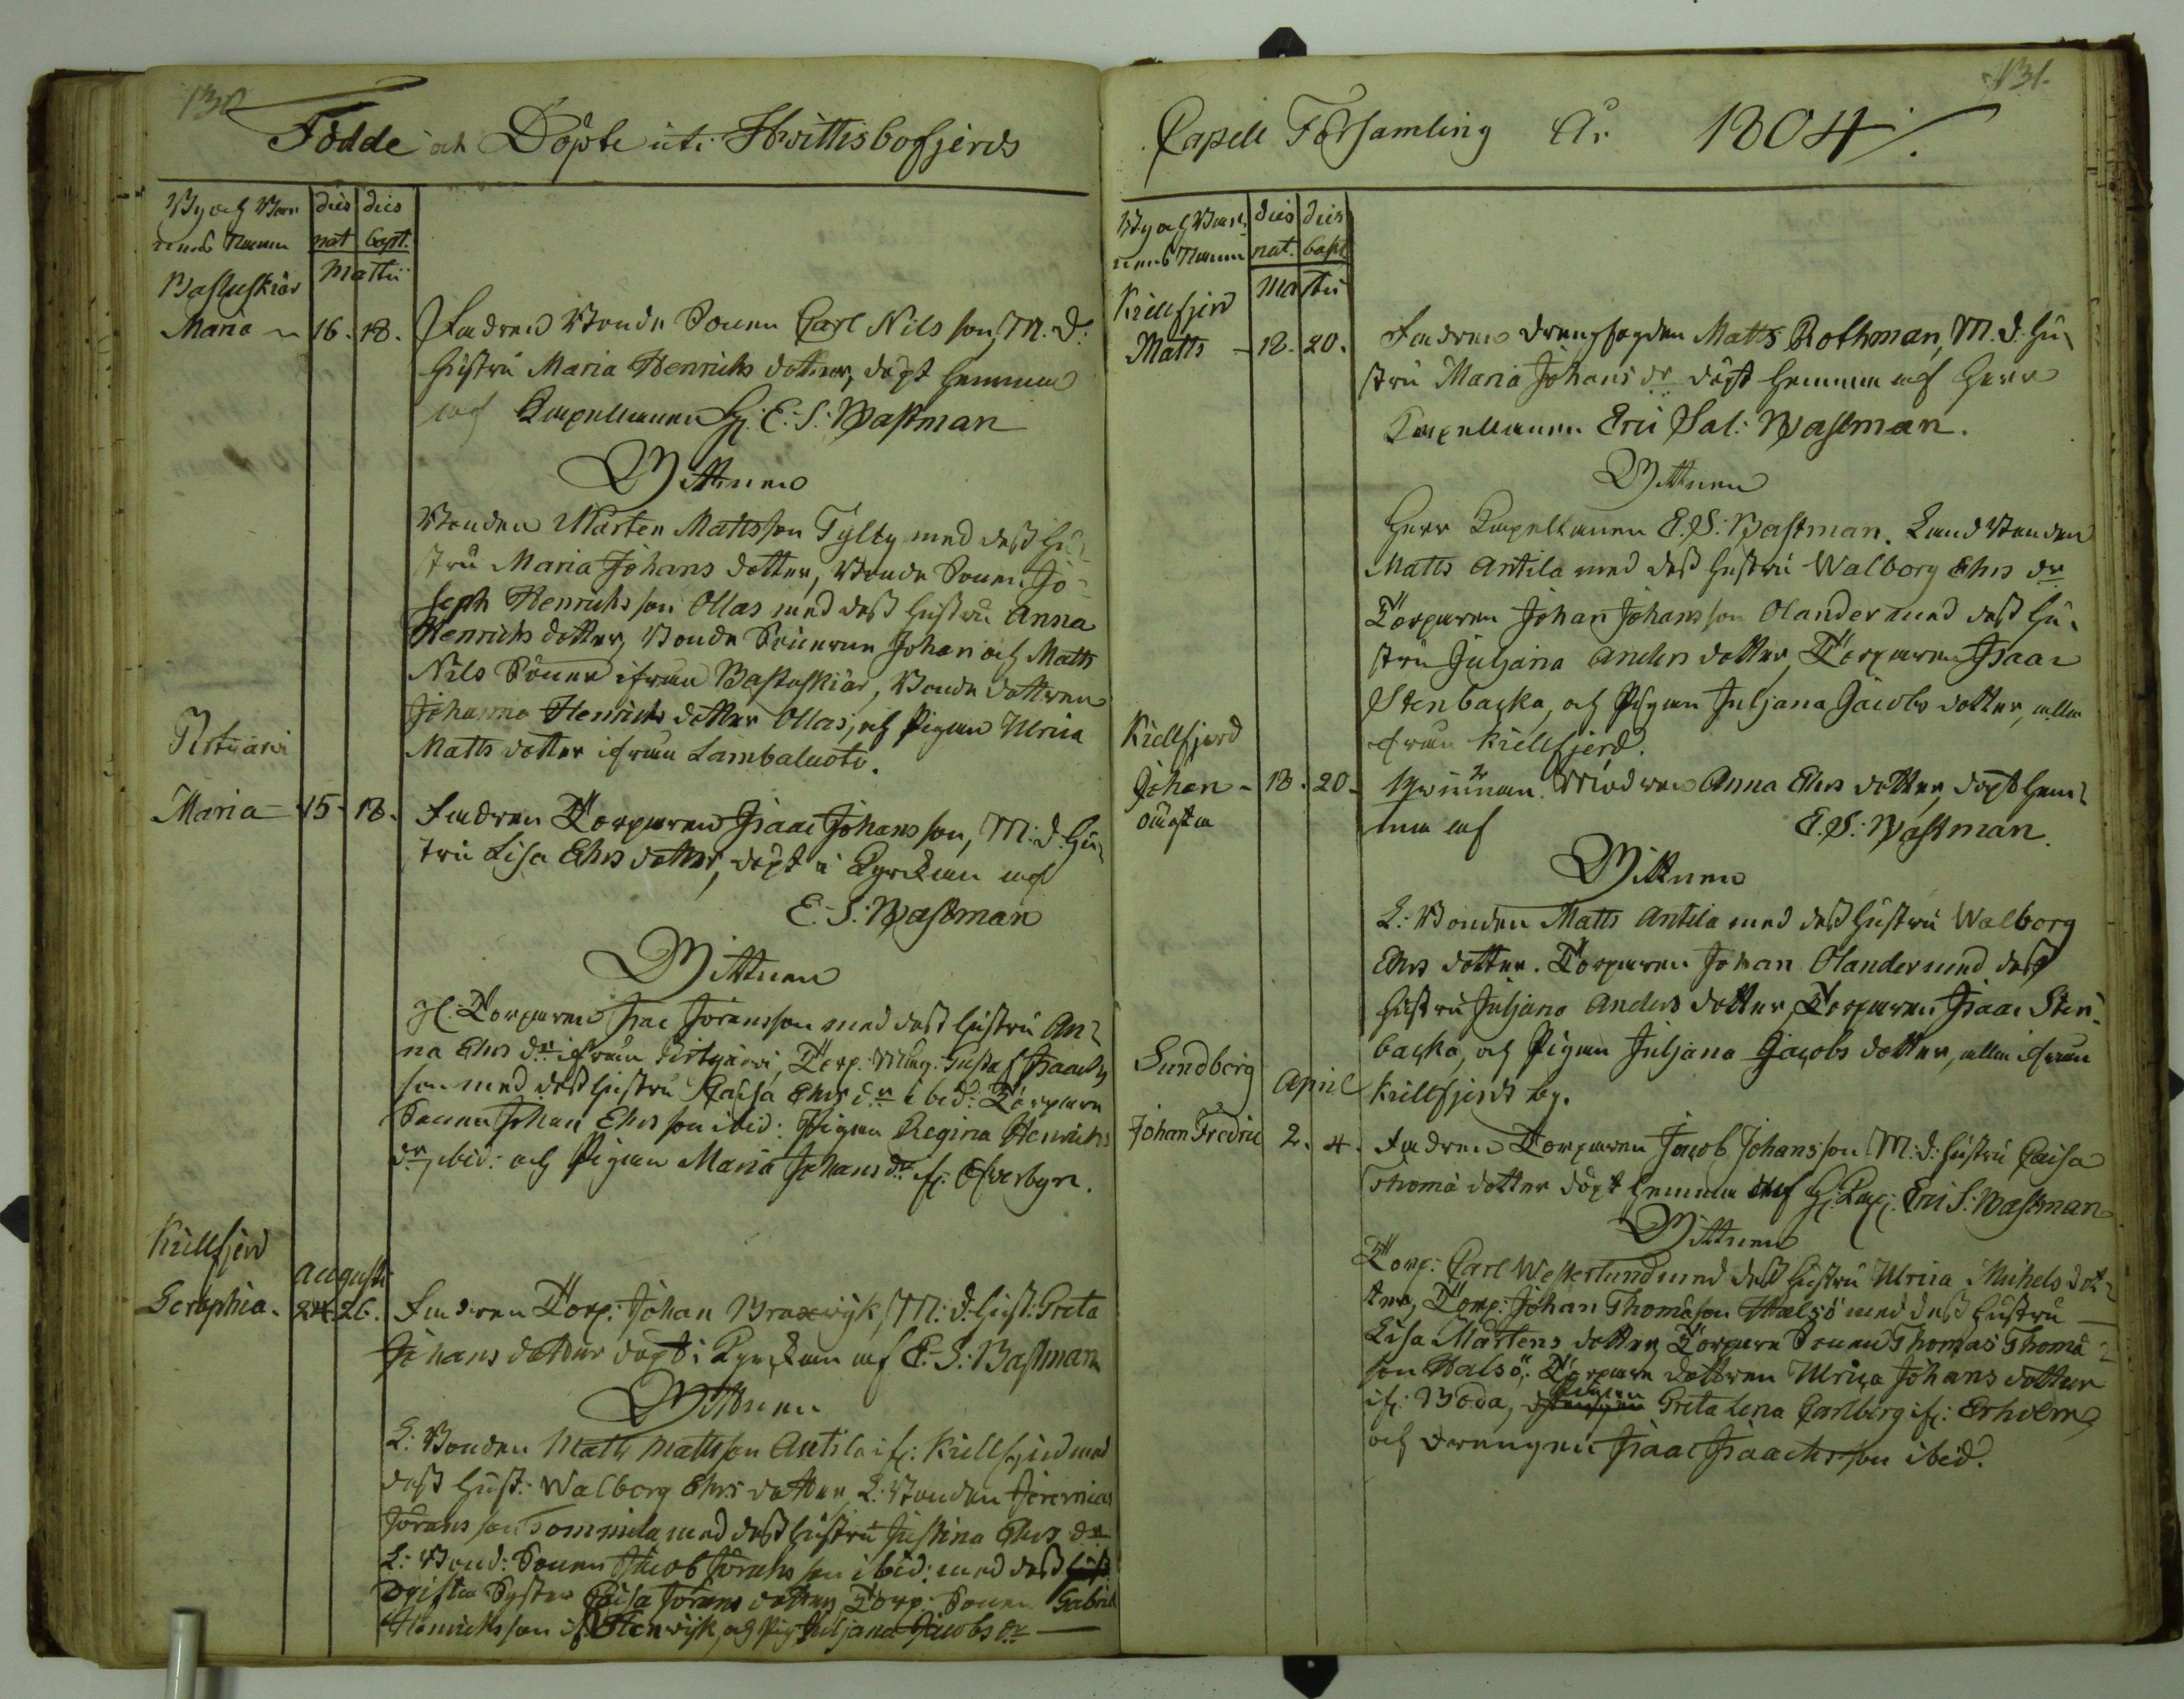 130
Födde och Döpte uti Hwittisbofjerds
By och Bar
nens Namn
dies nat
dies bapt.
Martii
Bastuskiär
Maria 16. 18. Fadren Bonde Sonen Carl Nils son, M. d.
hustru Maria Henrichs dotter, döpt hemma
af Capellanen H: E. S: Wastman
Wittnen
Bonden Mårten Mattsson Tylty med dess hu-
stru Maria Johans dotter, Bonde Sonen Jo-
seph Henrichs son Ollas med dess hustru Anna
Henrichs dotter, Bonde Sönerne Johan och Matts
Nils Söner ifrån Bastuskiär, Bonde dottren
Johanna Henrichs dotter Ollas, och Pigan Ulrica
Matts dotter ifrån Lambaluoto.
Pirtijärvi
Maria 15. 18. Fadren Torparen Isaac Johans son, M: d. Hu-
stru Lisa Ehrs dotter, döpt i Kyrckan af
E. S: Wastman
Wittnen
Torparen Isac Jöransson med dess hustru An-
na Ehrs dr ifrån Pirtijärvi, Torp. Måg. Gustaf Isaachs
son med dess hustru Caisa Ehrs dr ibid: Torpare
Sonen Johan Ehrs son ibid: Pigan Regina Henrichs
dr ibid: och Pigan Maria Johans dr if: Öfverbyn.
Kiellfjerd
Augusti
Seraphia. 24. 26. Fadren Torp: Johan Braxwijk, M: d. Hust: Greta
Johans dotter döpt i Kyrckan af E. S: Wastman
Wittnen
L: Bonden Matts Mattsson Antila if: Kiellfjerd med
dess Hust: Walborg Ehrs dotter, L: Bonden Jeremias
Jörans son Tommila med dess hustru Justina Ehrs dr
L: Bond: Sonen Jacob Jörans son ibid: med dess
ogifta Syster Caisa Jörans dotter, Torp: Sonen Gabriel
Henrichs son if Stenwijk, och Pig Juljana Jacobs dr
131.
Capell Församling År 1804.
By och Bar-
nens Namn
dies nat.
dies bapt
Martii
Kiellfjerd
Matts 18. 20. Fadren Drengfogden Matts Rothman, M. d. Hu-
stru Maria Johans dr döpt hemma af Herr
Capellanen Eric Sal: Wastman.
Wittnen
Herr Capellanen E. S: Wastman. Land Bonden
Matts Antila med dess hustru Walborg Ehrs dr
Torparen Johan Johans son Olander med dess hu-
stru Juljana Anders dotter, Torparen Isaac
Stenbacka, och Pigan Juljana Jacobs dotter, alla
ifrån Kiellfjerd.
Kiellfjerd
Johan 18. 20. Modren Anna Ehrs dotter, döpt hem-
oäckta
ma af E. S: Wastman.
Wittnen
L: Bonden Matts Antila med dess hustru Walborg
Ehrs dotter. Torparen Johan Olander med dess
hustru Juljana Anders dotter, Torparen Isaac Sten-
backa, och Pigan Juljana Jacobs dotter, alla ifrån
Kiellfjerds by.
Sundberg
April
Johan Fredric 2. 4. Fadren Torparen Jacob Johans son M: d: hustru Caisa
Thomä dotter döpt hemma af H: Cap: Eric S: Wastman
Wittnen
Torp: Carl Westerlund med dess hustru Ulrica Michels dot-
ter, Torp: Johan Thomä son Halsö med dess hustru
Lisa Mårtens dotter, Torpare Sonen Thomas Thomä
son Halsö. Torpare dottren Ulrica Johans dotter
if: Böda, Pigan Greta Lena Carlberg if: Erholm
och drengen Isaac Isaachs son ibid.